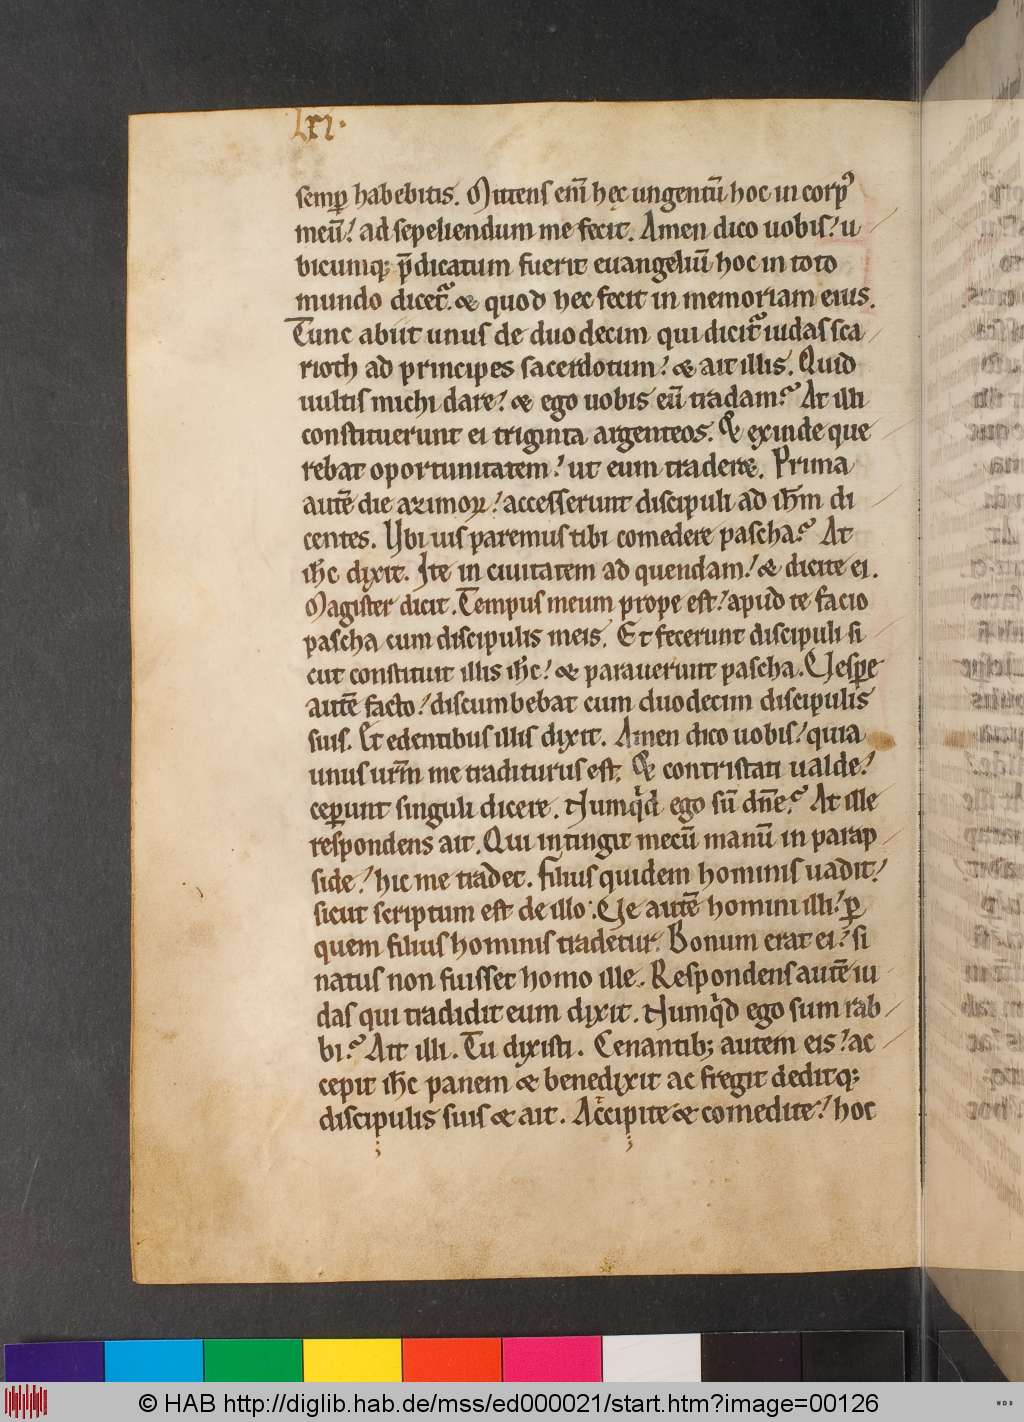 lxi.
semꝑ habebitis. Mittens eni̅ hęc ungentu̅ hoc in corpꝰ
meu̅! ad sepeliendum me fecit. Amen dico uobis! u
bicumq; p̅dicatum fuerit euangeliu̅ hoc in toto
mundo dicet᷑. & quod hec fecit in memoriam eius.
Tunc abiit unus de duodecim qui dicit᷑ iudas sca
rioth ad principes sacerdotum! & ait illis. Quid
uultis michi dare! & ego uobis eu̅ tradam? At illi
constituerunt ei triginta argenteos. & exinde que
rebat oportunitatem! ut eum traderet. Prima
aute̅ die azimoꝝ! accesserunt discipuli ad ih̅m di
centes. Ubi uis paremus tibi comedere pascha? At
ih̅c dixit. Ite in ciuitatem ad quendam! & dicite ei.
Magister dicit. Tempus meum prope est! apud te facio
pascha cum discipulis meis. Et fecerunt discipuli si
cut constituit illis ih̅c! & parauerunt pascha. Uesꝑe
aute̅ facto! discumbebat cum duodecim discipulis
suis. Et edentibus illis dixit. Amen dico uobis! quia
unus ur̅m me traditurus est. & contristati ualde!
ceꝑunt singuli dicere. Numqͥd ego su̅ dn̅e? At ille
respondens ait. Qui intingit mecu̅ manu̅ in parap
side! hic me tradet. Filius quidem hominis uadit!
sicut scriptum est de illo. Ue aute̅ homini illi! ꝑ
quem filius hominis tradetur. Bonum erat ei! si
natus non fuisset homo ille. Respondens aute̅ iu
das qui tradidit eum dixit. Numqͥd ego sum rab
bi? Ait illi. Tu dixisti. Cenantib; autem eis! ac
cepit ih̅c panem & benedixit ac fregit deditq;
discipulis suis & ait. Accipite & comedite! hoc
© HAB http://diglib.hab.de/mss/ed000021/start.htm?image=00126